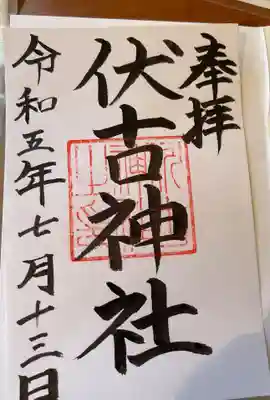 奉拝
伏古神社
令和五年七月十三日